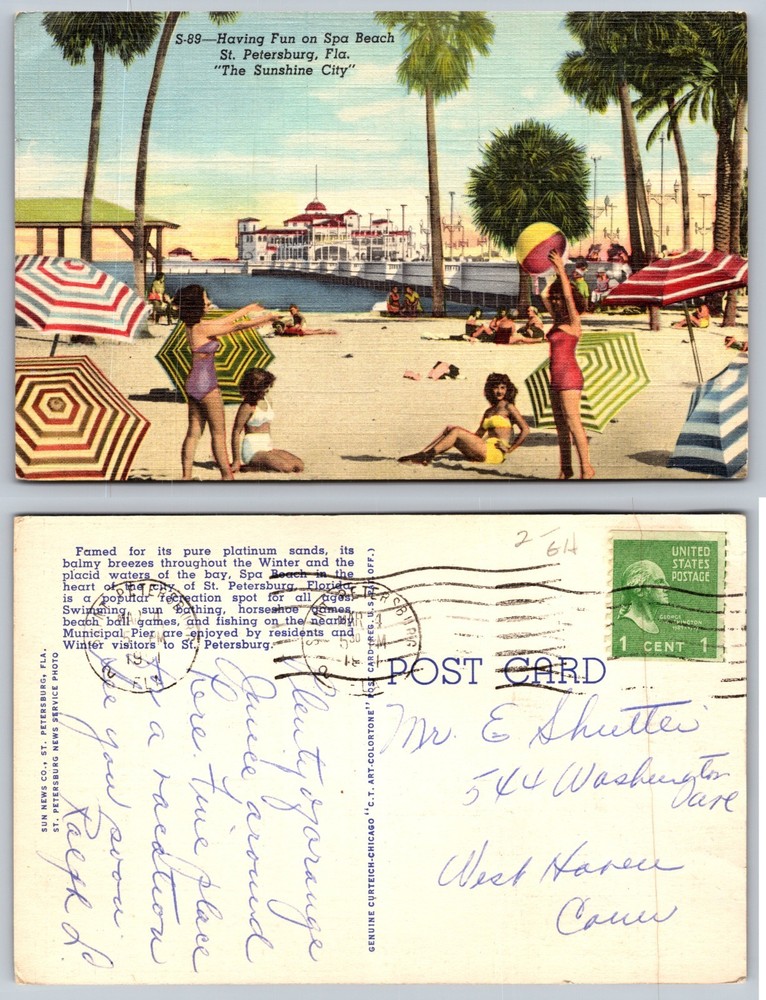 S-89—Having Fun on Spa Beach
St. Petersburg, Fla.
"The Sunshine City"
2-
GH
Famed for its pure platinum sands, its
balmy breezes throughout the Winter and the
placid waters of the bay, Spa Beach in the
heart of the city of St. Petersburg, Florida,
is a popular recreation spot for all ages.
Swimming, sun bathing, horseshoe games,
beach ball games, and fishing on the nearby
Municipal Pier are enjoyed by residents and
Winter visitors to St. Petersburg.
UNITED
STATES
POSTAGE
GEORGE
WASHINGTON
1 CENT 1
POST CARD
SUN NEWS CO., ST. PETERSBURG, FLA.
ST. PETERSBURG NEWS SERVICE PHOTO
GENUINE CURTEICH-CHICAGO "C.T. ART-COLORTONE" POST CARD (REG. U.S. PAT. OFF.)
Plenty of orange
Juice around
here. Fine place
for a vacation
See you soon
Ralph L.
Mr. E Shutter
544 Washington
Dave
West Haven
Conn